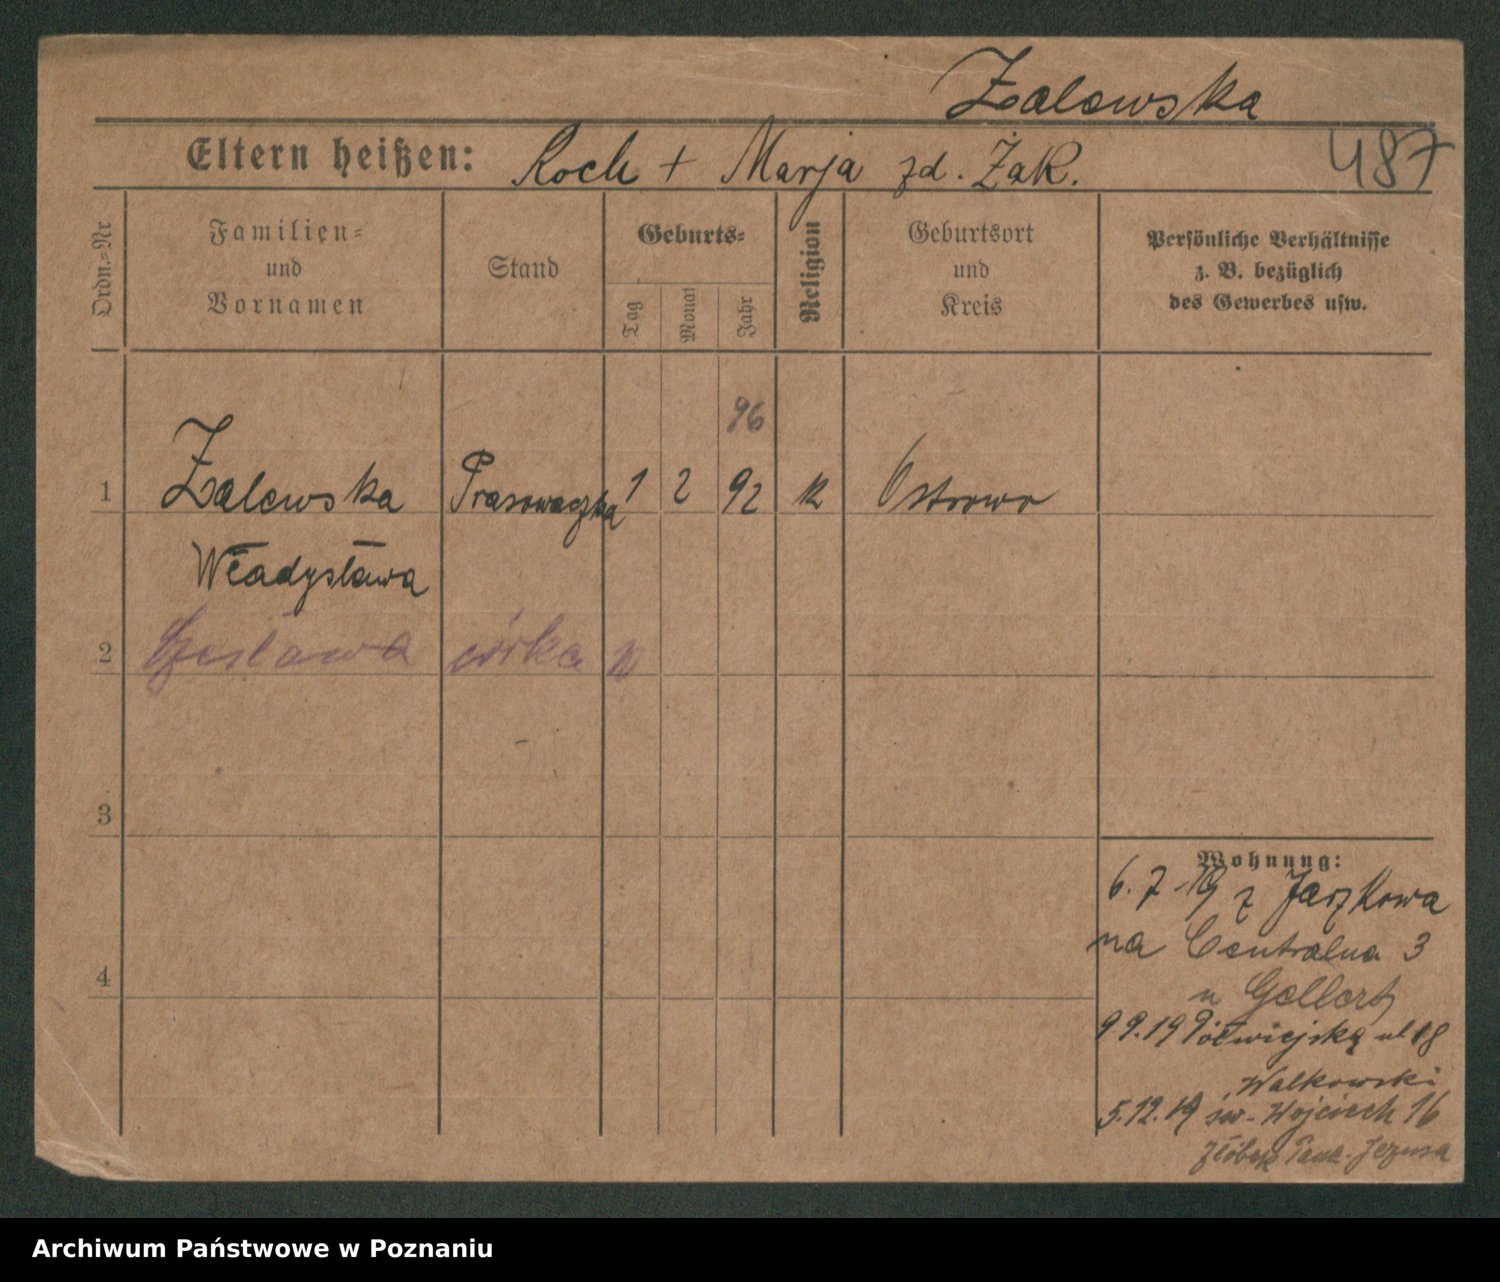 Zalewska
Eltern heißen: Roch + Marja zd. Żak.
487
Ordn.-Nr
Familien-
und
Vornamen
Stand
Geburts-
Tag
Monat
Jahr
Religion
Geburtsort
und
Kreis
Persönliche Verhältnisse
z. B. bezüglich
des Gewerbes usw.
96
1 Zalewska Prasowaczka 1 2 92 k Ostrowo
Władysława
2 Czesława córka
3
4
Wohnung:
6. 7 19 z Jarzkowa
na Centralna 3
u Gellert
9 9. 19 Półwiejska ul 18
Walkowski
5. 12. 19 św. Wojciech 16
żłobek Jezusa
Archiwum Państwowe w Poznaniu